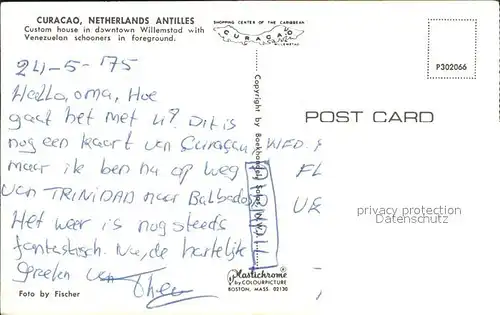 CURACAO, NETHERLANDS ANTILLES
Custom house in downtown Willemstad with
Venezuelan schooners in foreground.
SHOPPING CENTER OF THE CARIBBEAN
CURAÇAO
WILLEMSTAD
P302066
24-5-'75
Hallo, oma, Hoe
gaat het met U? Dit is
nog een kaart van Curaçau,
maar ik ben nu op weg
van TRINIDAD naar Balbados
Het weer is nog steeds
fantastisch. Nu, de hartelijke
groeten van
Theo
Copyright by Boekhandel Salas
POST CARD
WED.
FL
privacy protection
Datenschutz
Plastichrome
by COLOURPICTURE
BOSTON, MASS. 02130
Foto by Fischer